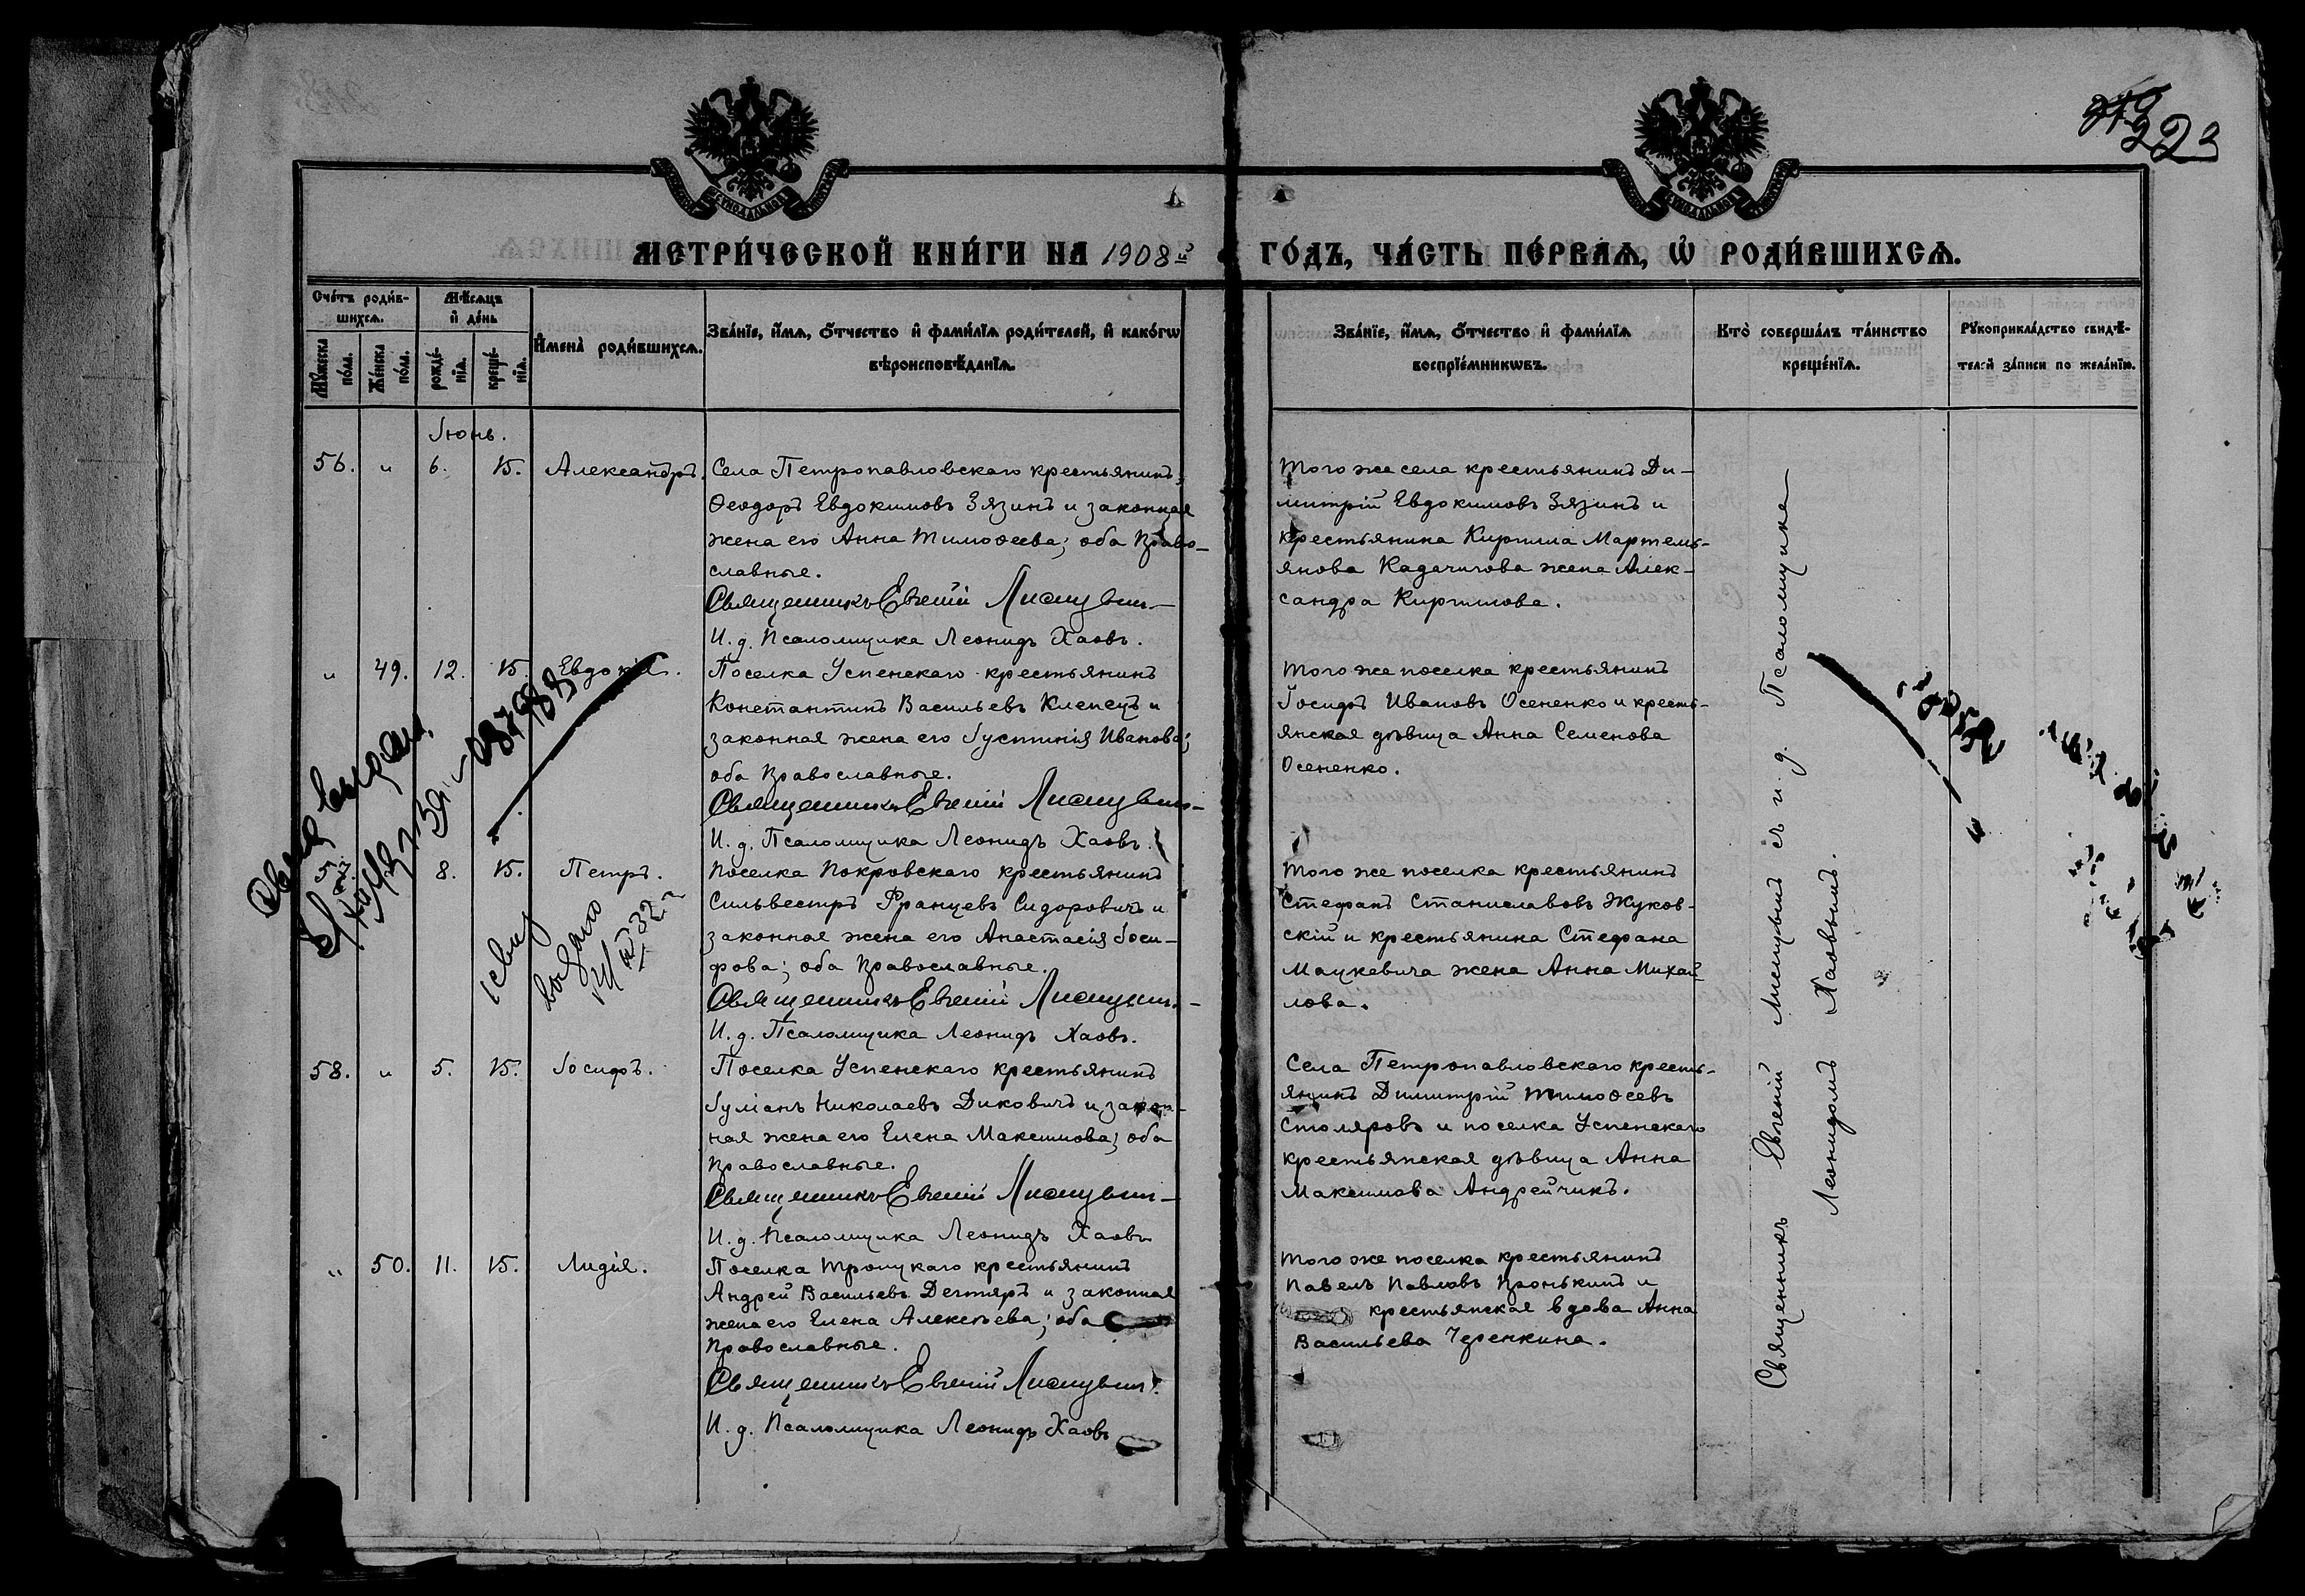 223
МЕТРИ́ЧЕСКОЙ КНИ́ГИ НА 1908й ГО́ДЪ, ЧА́СТЬ ПЕ́РВАѦ, Ѡ РОДИ́ВШИХСѦ.
Сче́тъ роди́в-
шихсѧ.
Мꙋ́жеска по́ла.
Же́нска по́ла.
Мѣ́сѧцъ
и де́нь
рожде́-
нїѧ.
креще́-
нїѧ.
Имена̀ роди́вшихсѧ.
Зва́нїе, и́мѧ, ѻ́тчество и фами́лїѧ роди́телей, и како́гѡ
вѣроисповѣ́данїѧ.
Зва́нїе, и́мѧ, ѻ́тчество и фами́лїѧ
воспрїе́мникѡвъ.
Кто̀ соверша́лъ та́инство
креще́нїѧ.
Рꙋкоприкла́дство свидѣ́-
телей за́писи по жела́нїю.
Іюнь.
56. " 6. 15. Александръ.
Села Петропавловскаго крестьянинъ
Ѳеодоръ Евдокимовъ Зязинъ и законная
жена его Анна Тимоѳеева; оба Право-
славные.
Священникъ Евгеній
И. д. Псаломщика Леонидъ Хаовъ.
Того же села крестьянинъ Ди-
митрій Евдокимовъ Зязинъ и
крестьянина Кирилла Мартемь-
янова Кадачигова жена Алек-
сандра Кириллова.
" 49. 12. 15. Евдокія.
Поселка Успенскаго крестьянинъ
Константинъ Васильевъ Клепецъ и
законная жена его Іустинія Иванова;
оба Православные.
Священникъ Евгеній
И. д. Псаломщика Леонидъ Хаовъ.
Того же поселка крестьянинъ
Іосифъ Ивановъ Осененко и кресть-
янская дѣвица Анна Семенова
Осененко.
8. 15. Петръ.
Поселка Покровскаго крестьянинъ
Сильвестръ Францевъ Сидоровичъ и
законная жена его Анастасія Іоси-
фова; оба Православные.
Священникъ Евгеній
И. д. Псаломщика Леонидъ Хаовъ.
Того же поселка крестьянинъ
Стефанъ Станиславовъ Жуков-
скій и крестьянина Стефана
Мацкевича жена Анна Михай
лова.
58. " 5. 15. Іосифъ.
Поселка Успенскаго крестьянинъ
Іуліанъ Николаевъ Диковичъ и закон-
ная жена его Елена Максимова; оба
Православные.
Священникъ Евгеній
И. д. Псаломщика Леонидъ Хаовъ
Села Петропавловскаго кресть-
янинъ Димитрій Тимоѳеевъ
Столяровъ и поселка Успенскаго
крестьянская дѣвица Анна
Максимова Андрейчикъ.
" 50. 11. 15. Лидія.
Поселка Троицкаго крестьянинъ
Андрей Васильевъ Дегтярь и законная
жена его Елена Алексѣева; оба
Православные.
Священникъ Евгеній
И. д. Псаломщика Леонидъ Хаовъ
Того же поселка крестьянинъ
Павелъ Павловъ Пронькинъ и
крестьянская вдова Анна
Васильева Черенкина.
Священникъ Евгеній съ и. д. Псаломщика
Леонидомъ Хаовымъ.